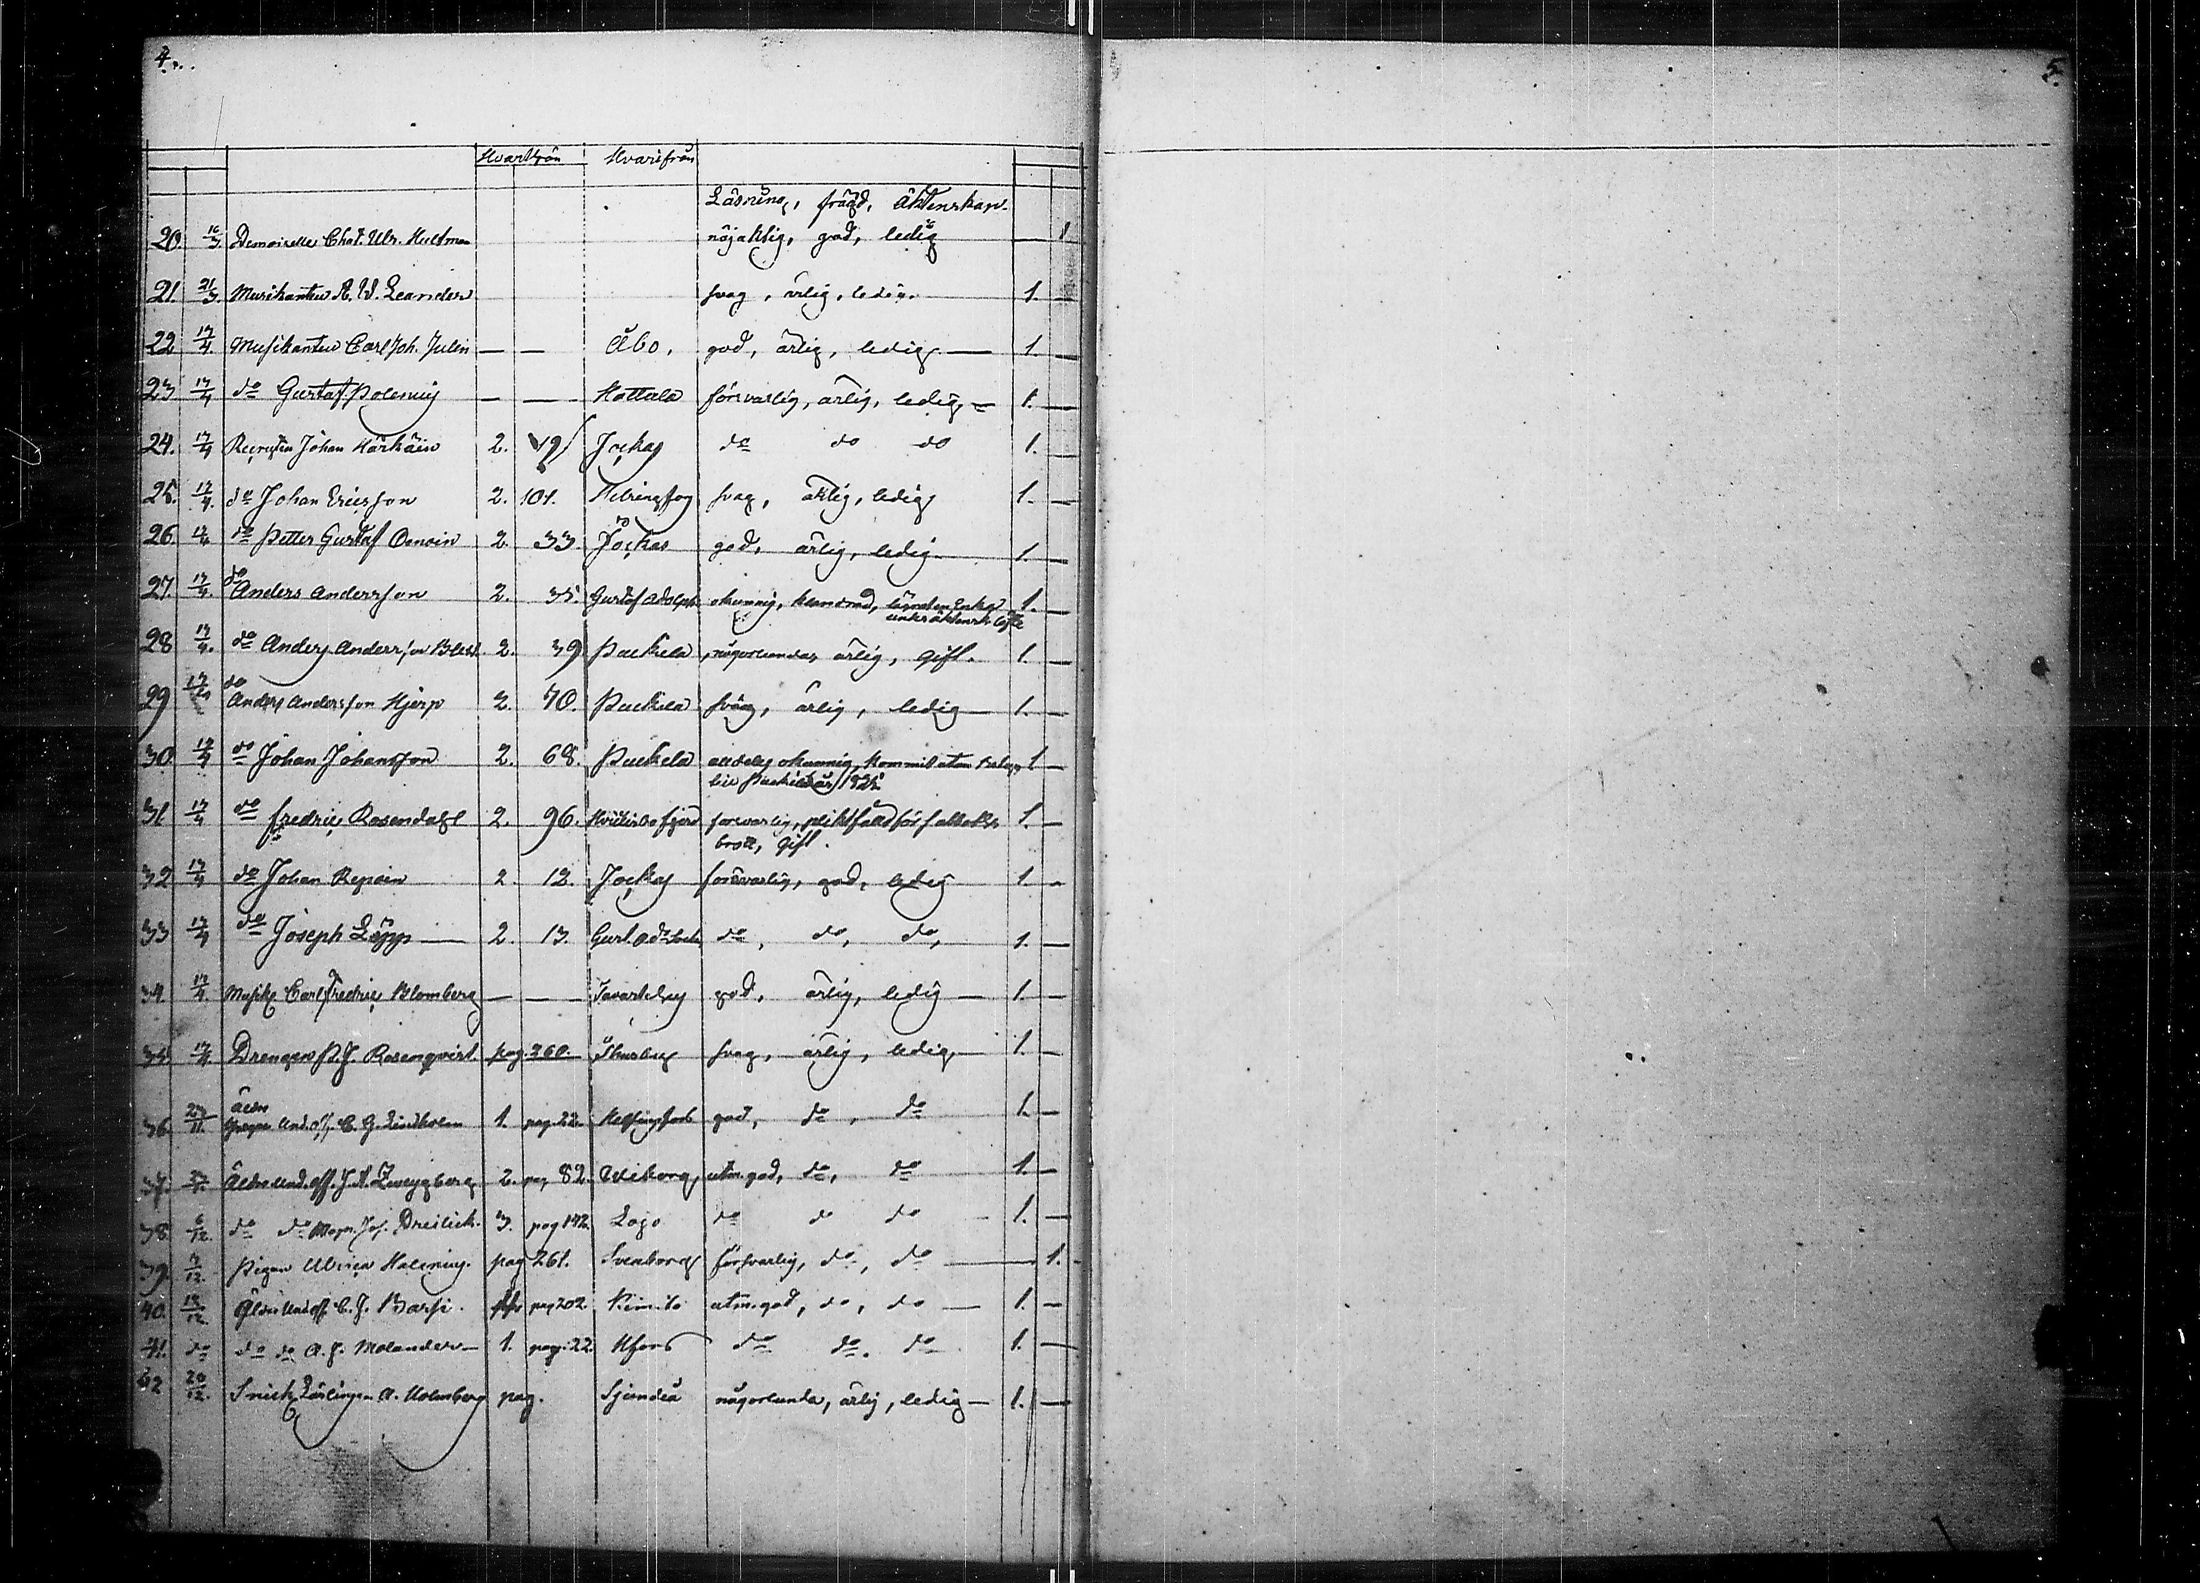 4.
5.
Hvartifrån Hvarifrån
Läsning, frägd, Äktenskap.
20. 16/3 Demoiselle Chat. Ulr. Hultman nöjaktig, god, ledig — 1
21. 21/3 Musikanten A. W. Leander svag, ärlig, ledig. 1. —
22 17/4. Musikanten Carl Joh. Julin — — Åbo, god, ärlig, ledig — 1. —
23 17/4 do Gustaf Polenius — — Hattula försvarlig, ärlig, ledig — 1. —
24. 17/4 Recruten Johan Härkäin 2. Jockas do do do 1. —
25. 17/4. do Johan Ericsson 2. 101. Helsingfors svag, ärlig, ledig 1. —
26. 17/4 do Petter Gustaf 2. 33. Jockas god, ärlig, ledig 1. —
27. 17/4. do Anders Andersson 2. 35. Gustaf Adolphs okunnig, 1. —
28 17/4. do Anders Andersson 2. 39 Puckila någorlunda, ärlig, gift. 1. —
29 17/4 do Anders Andersson Hjerp 2. 70. Puckila svag, ärlig, ledig — 1. —
30 17/4 do Johan Johansson 2. 68. Puckila alldeles okunnig, kommit utan 1 —
år 1825
31 17/4 do Fredric Rosendahl 2. 96. försvarlig, 1. —
brott, gift.
32 17/4 do Johan Repoin 2. 12. Jockas försvarlig, god, ledig 1. —
33 17/4 do Joseph Läpp — 2. 13. Gust. Ad. do, do, do, 1. —
34. 17/4. Musik. Carl Fredric Blomberg — — Tavastehus god, ärlig, ledig — 1. —
35 17/4. Drengen P. J. Rosenqvist pag. 260. svag, ärlig, ledig, — 1. —
36. 27/11. Äldre
And. off. C. G. Lindholm 1. pag. 22. Helsingfors god, do, do 1. —
37. Äldre Und. off. J. A. Zweygberg 2. pag 82. Wiborg utm. god, do, do 1. —
38. 6/12. do do Joh. Dreilick. 3. pag 172 Lojo do do do 1. —
39. 7/12. Pigan Ulrica Halenius. pag 261. Sveaborg försvarlig, do, do — 1. —
40. 12/12. Äldre Und. off. C. J. Barsi. pag 202 Kimito utm. god, do, do — 1. —
41. do do do A. F. Molander — 1. pag. 22 Hfors do do. do 1. —
42 20/12. Snick. Lärlingen A. Holmberg pag. Sjundeå någorlunda, ärlig, ledig — 1. —